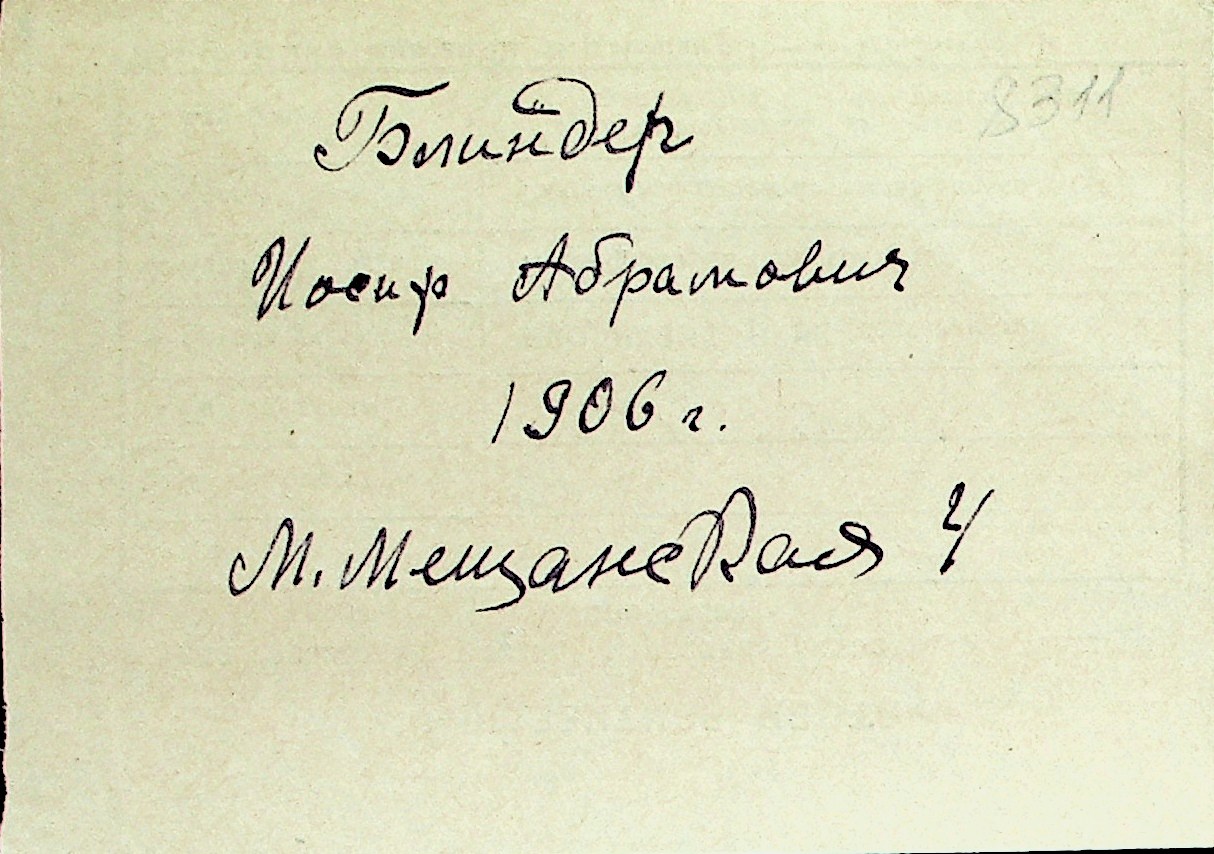 8311
Блиндер
Иосиф Абрамович
1906 г.
М. Мещанская 4